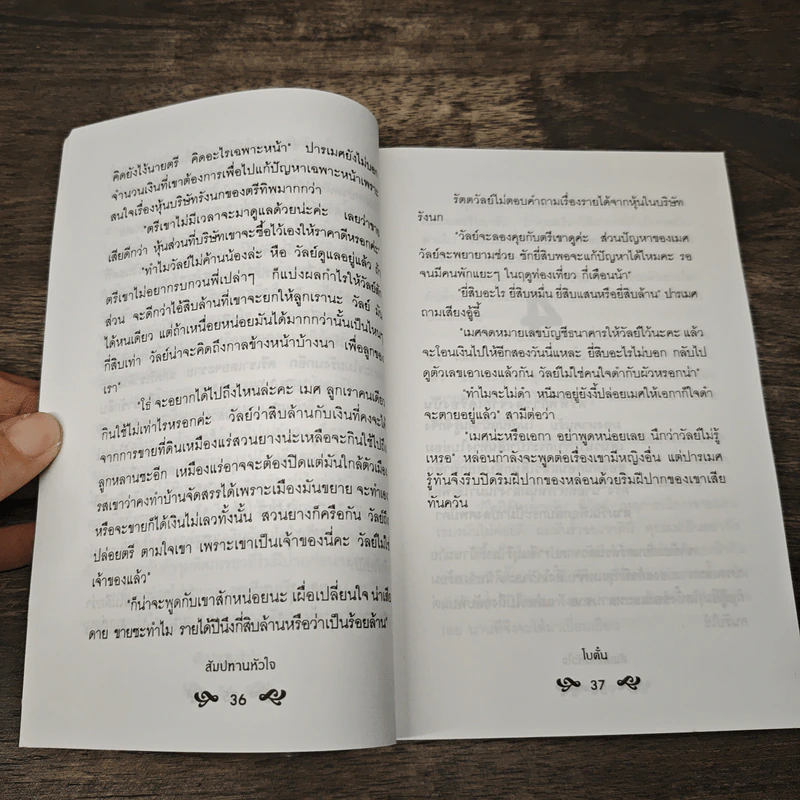 คิดยังไงนายตรี คิดอะไรเฉพาะหน้า" ปารเมศยังไม่บอก
จำนวนเงินที่เขาต้องการเพื่อไปแก้ปัญหาเฉพาะหน้าเพราะ
สนใจเรื่องหุ้นบริษัทรังนกของตรีทิพมากกว่า
"ตรีเขาไม่มีเวลาจะมาดูแลด้วยน่ะค่ะ เลยว่าขาย
เสียดีกว่า หุ้นส่วนที่บริษัทเขาจะซื้อไว้เองให้ราคาดีหรอกค่ะ"
"ทำไมวัลย์ไม่ค้านน้องล่ะ หือ วัลย์ดูแลอยู่แล้ว ถ้า
ตรีเขาไม่อยากรบกวนพี่เปล่าๆ ก็แบ่งผลกำไรให้วัลย์สัก
ส่วน จะดีกว่าไอ้สิบล้านที่เขาจะยกให้ลูกเรานะ วัลย์
ได้หนเดียว แต่ถ้าเหนื่อยหน่อยมันได้มากกว่านั้นเป็นไหนๆ
กี่สิบเท่า วัลย์น่าจะคิดถึงกาลข้างหน้าบ้างนา เพื่อลูกของ
เรา"
"โธ่ จะอยากได้ไปถึงไหนล่ะคะ เมศ ลูกเราคนเดียว
กินใช้ไม่เท่าไรหรอกค่ะ วัลย์ว่าสิบล้านกับเงินที่คงจะได้
จากการขายที่ดินเหมืองแร่สวนยางน่ะเหลือจะกินใช้ไปถึง
ลูกหลานซะอีก เหมืองแร่อาจจะต้องปิดแต่มันใกล้ตัวเมือง
รสเขาว่าคงทำบ้านจัดสรรได้เพราะเมืองมันขยาย จะทำเอง
หรือจะขายก็ได้เงินไม่เลวทั้งนั้น สวนยางก็ครือกัน วัลย์ถึง
ปล่อยตรี ตามใจเขา เพราะเขาเป็นเจ้าของนี่คะ วัลย์ไม่ใช่
เจ้าของแล้ว"
"ก็น่าจะพูดกับเขาสักหน่อยนะ เผื่อเปลี่ยนใจ น่าเสีย
ดาย ขายซะทำไม รายได้ปีนึงกี่สิบล้านหรือว่าเป็นร้อยล้าน"
สัมปทานหัวใจ
36
รัตตวัลย์ไม่ตอบคำถามเรื่องรายได้จากหุ้นในบริษัท
รังนก
"วัลย์จะลองคุยกับตรีเขาดูค่ะ ส่วนปัญหาของเมศ
วัลย์จะพยายามช่วย ซักยี่สิบพอจะแก้ปัญหาได้ไหมคะ รอ
จนมีคนพักแยะๆ ในฤดูท่องเที่ยว กี่เดือนน้า"
"ยี่สิบอะไร ยี่สิบหมื่น ยี่สิบแสนหรือยี่สิบล้าน" ปารเมศ
ถามเสียงอู้อี้
"เมศจดหมายเลขบัญชีธนาคารให้วัลย์ไว้นะคะ แล้ว
จะโอนเงินไปให้อีกสองวันนี่แหละ ยี่สิบอะไรไม่บอก กลับไป
ดูตัวเลขเอาเองแล้วกัน วัลย์ไม่ใช่คนใจดำกับผัวหรอกน่า"
"ทำไมจะไม่ดำ หนีมาอยู่ยังงี้ปล่อยเมศให้เอกาก็ใจดำ
จะตายอยู่แล้ว" สามีต่อว่า
"เมศน่ะหรือเอกา อย่าพูดหน่อยเลย นึกว่าวัลย์ไม่รู้
เหรอ" หล่อนกำลังจะพูดต่อเรื่องเขามีหญิงอื่น แต่ปารเมศ
รู้ทันจึงรีบปิดริมฝีปากของหล่อนด้วยริมฝีปากของเขาเสีย
ทันควัน
โบตั๋น
37